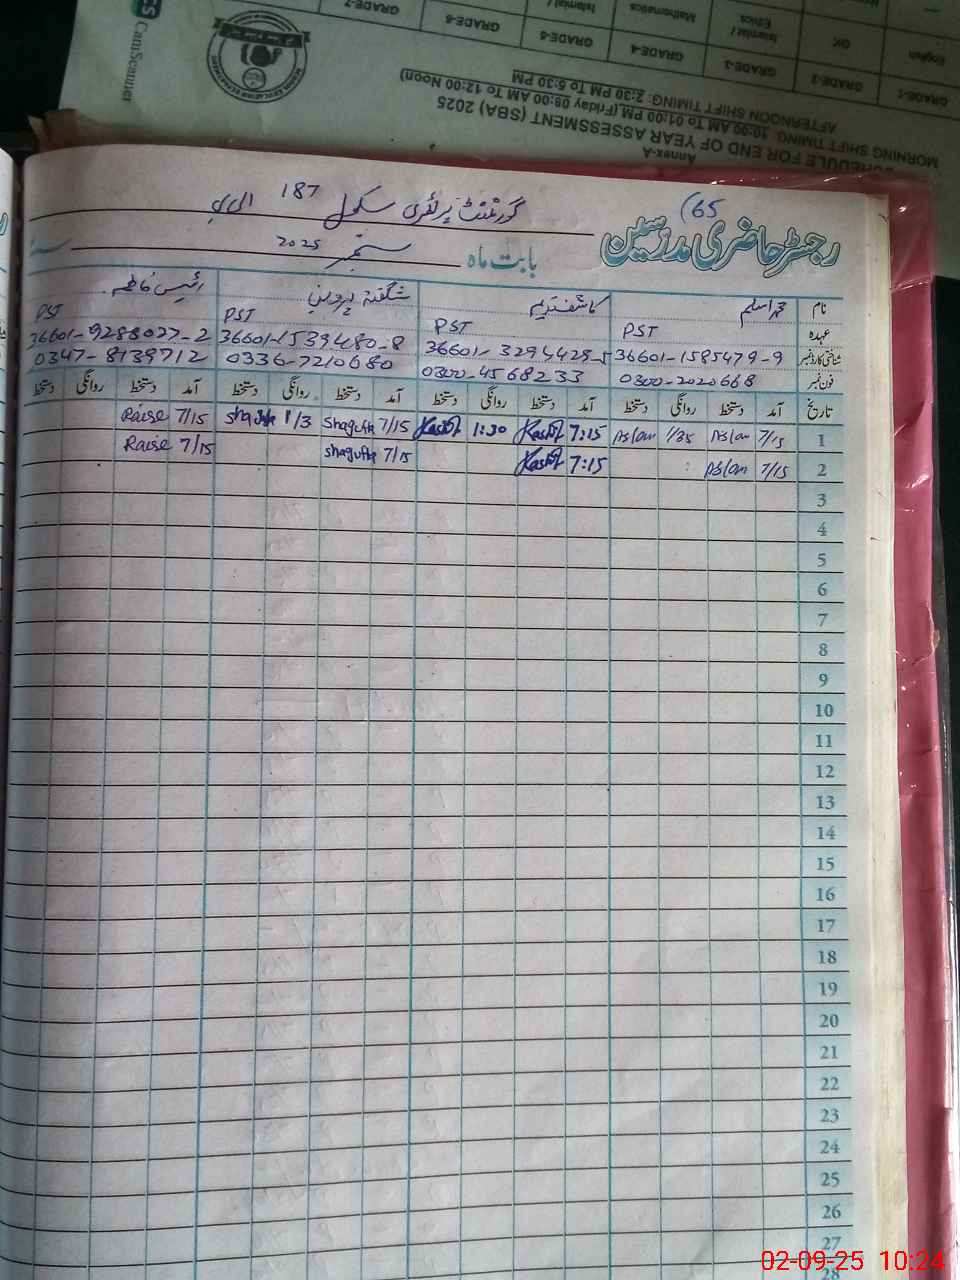 CamScanner
CS
Annex-A
SCHEDULE FOR END OF YEAR ASSESSMENT (SBA) 2025
MORNING SHIFT TIMING: 10:00 AM To 01:00 PM (Friday 09:00 AM To 12:00 Noon)
AFTERNOON SHIFT TIMING: 2:30 PM To 5:30 PM
GRADE-1 GRADE-2 GRADE-3 GRADE-4 GRADE-5 GRADE-6 GRADE-7
English GK Islamiat / Ethics Mathematics Islamiat /
65
رجسٹر حاضری مدرسین
گورنمنٹ پرائمری سکول 187 ای بی
بابت ماہ ستمبر 2025
نام محمد اسلم کاشف ندیم شگفتہ پروین
عہدہ PST PST PST PST
شناختی کارڈ نمبر 36601-1585479-9 36601-3294428-5 36601-1539480-8 36601-9288027-2
فون نمبر 0300-2020668 0300-4568233 0336-7210680 0347-8139712
تاریخ آمد دستخط روانگی دستخط آمد دستخط روانگی دستخط آمد دستخط روانگی دستخط آمد دستخط روانگی دستخط
1 7/15 Aslam 1/35 Aslam 7:15 Kashif 1:30 Kashif 7/15 Shagufta 1/3 Shagufta 7/15 Raise
2 7/15 Aslam 7:15 Kashif 7/15 Shagufta 7/15 Raise
3
4
5
6
7
8
9
10
11
12
13
14
15
16
17
18
19
20
21
22
23
24
25
26
27
28
02-09-25 10:24